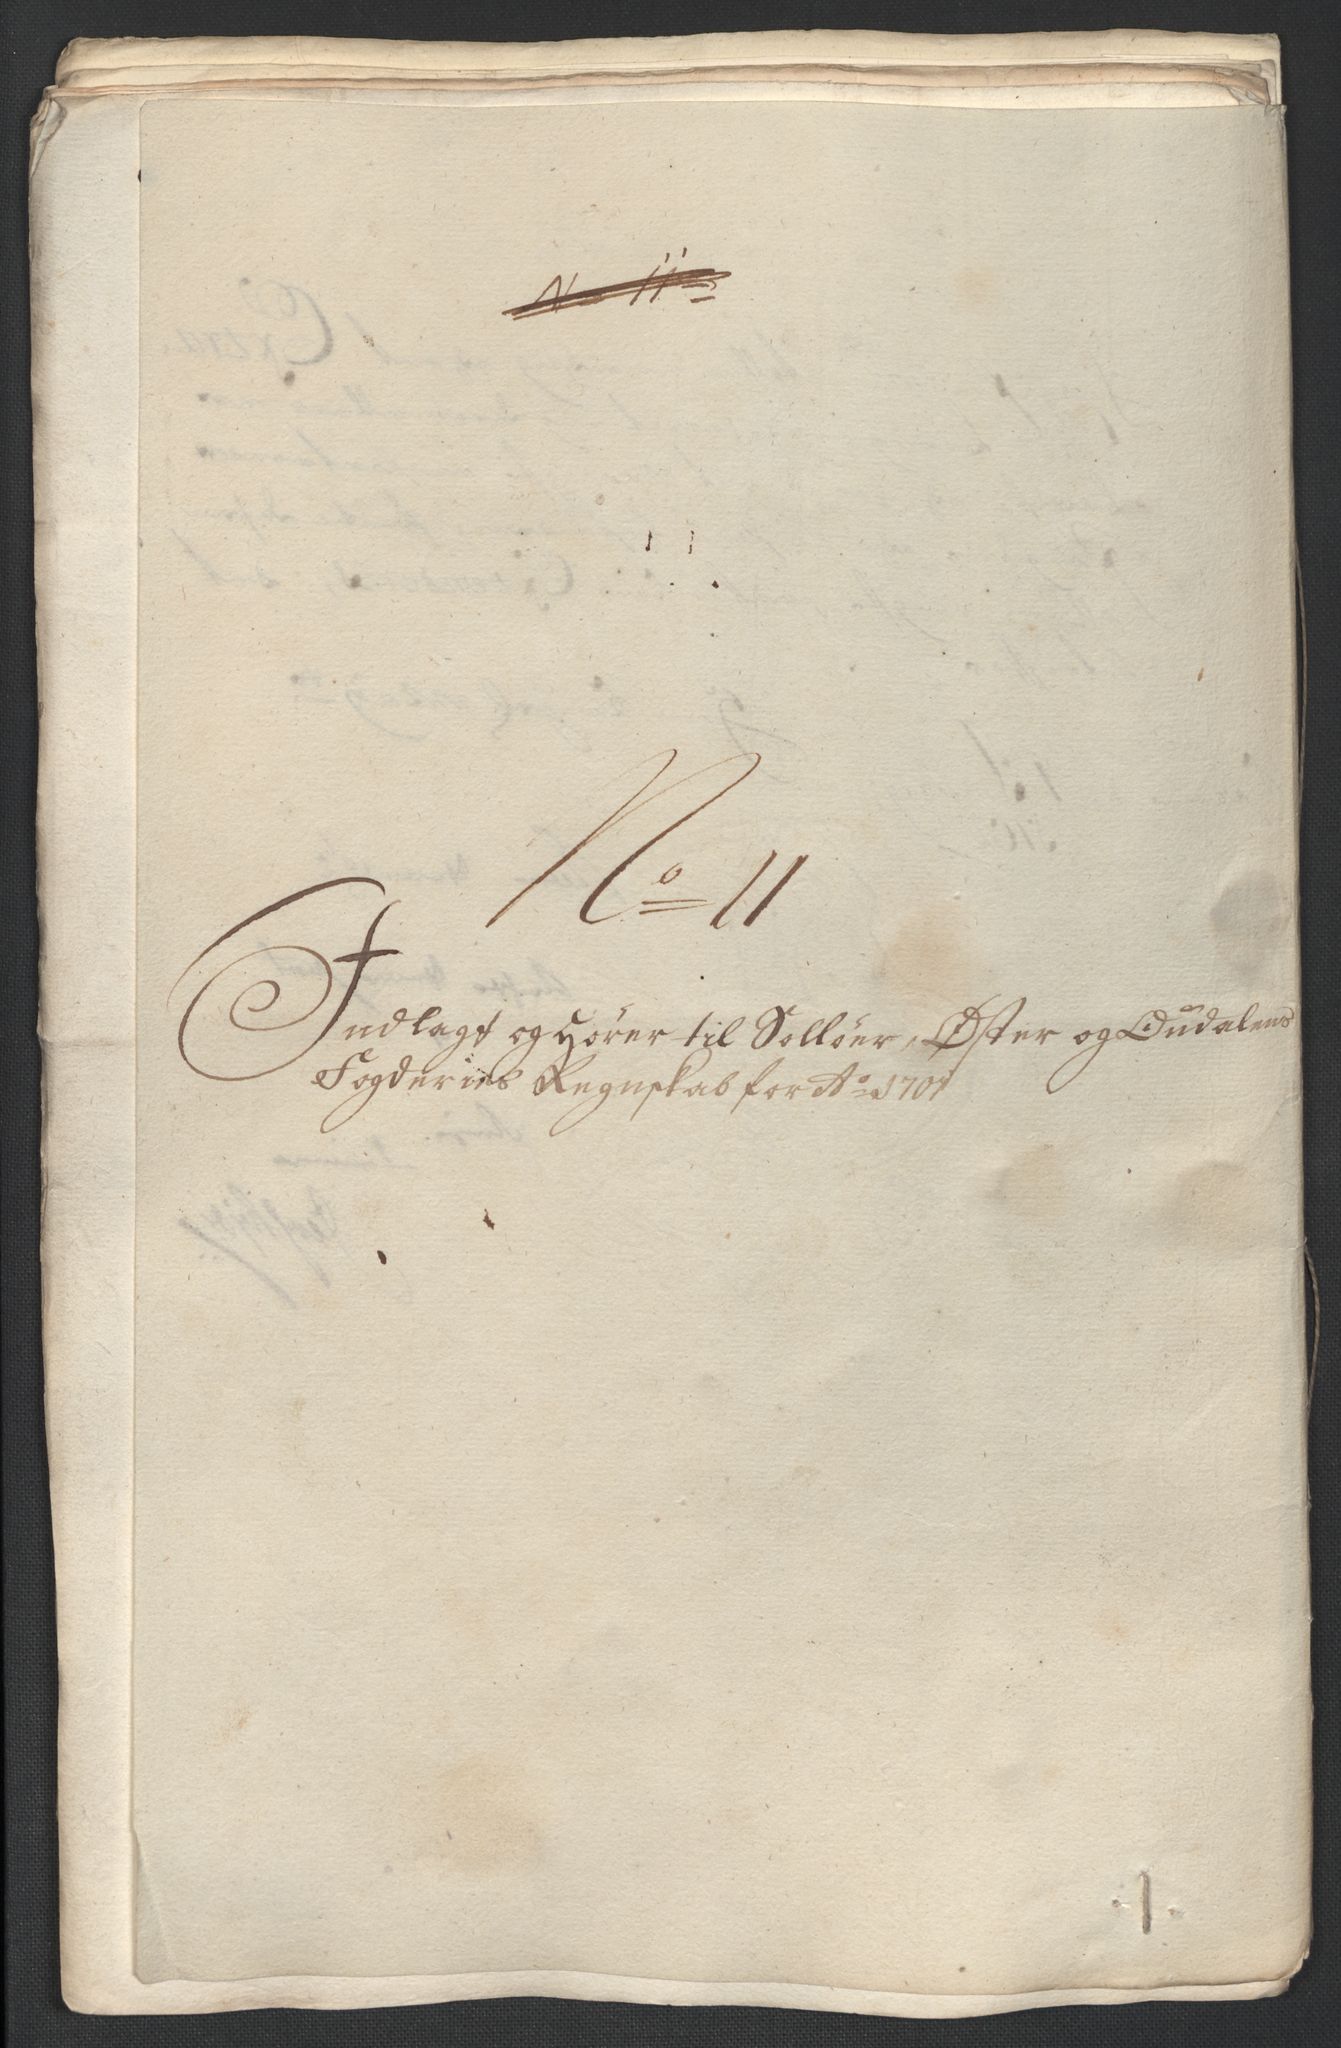 No 11
No 11
Indlagt og Hörer til Sollöer, Öster og Oudalens
Fogderies Regnskab for Ao 1701